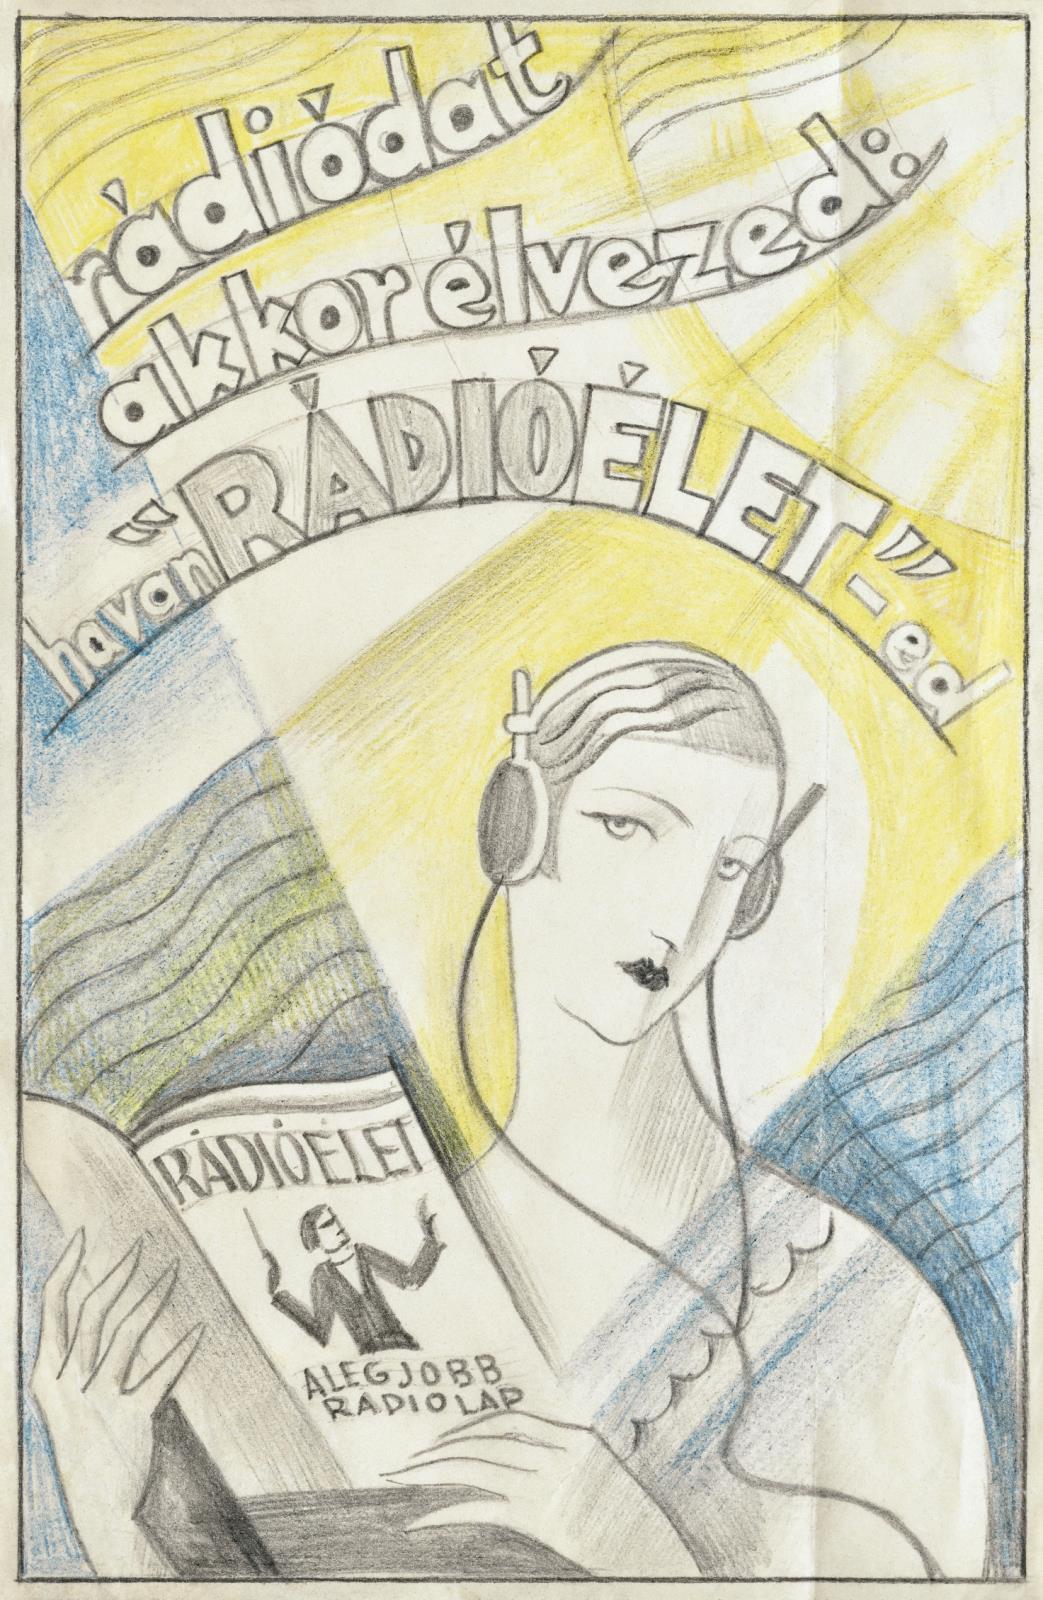 rádiódat
akkor élvezed:
havan "RÁDIÓÉLET"-ed
RÁDIÓÉLET
A LEGJOBB
RÁDIÓ LAP